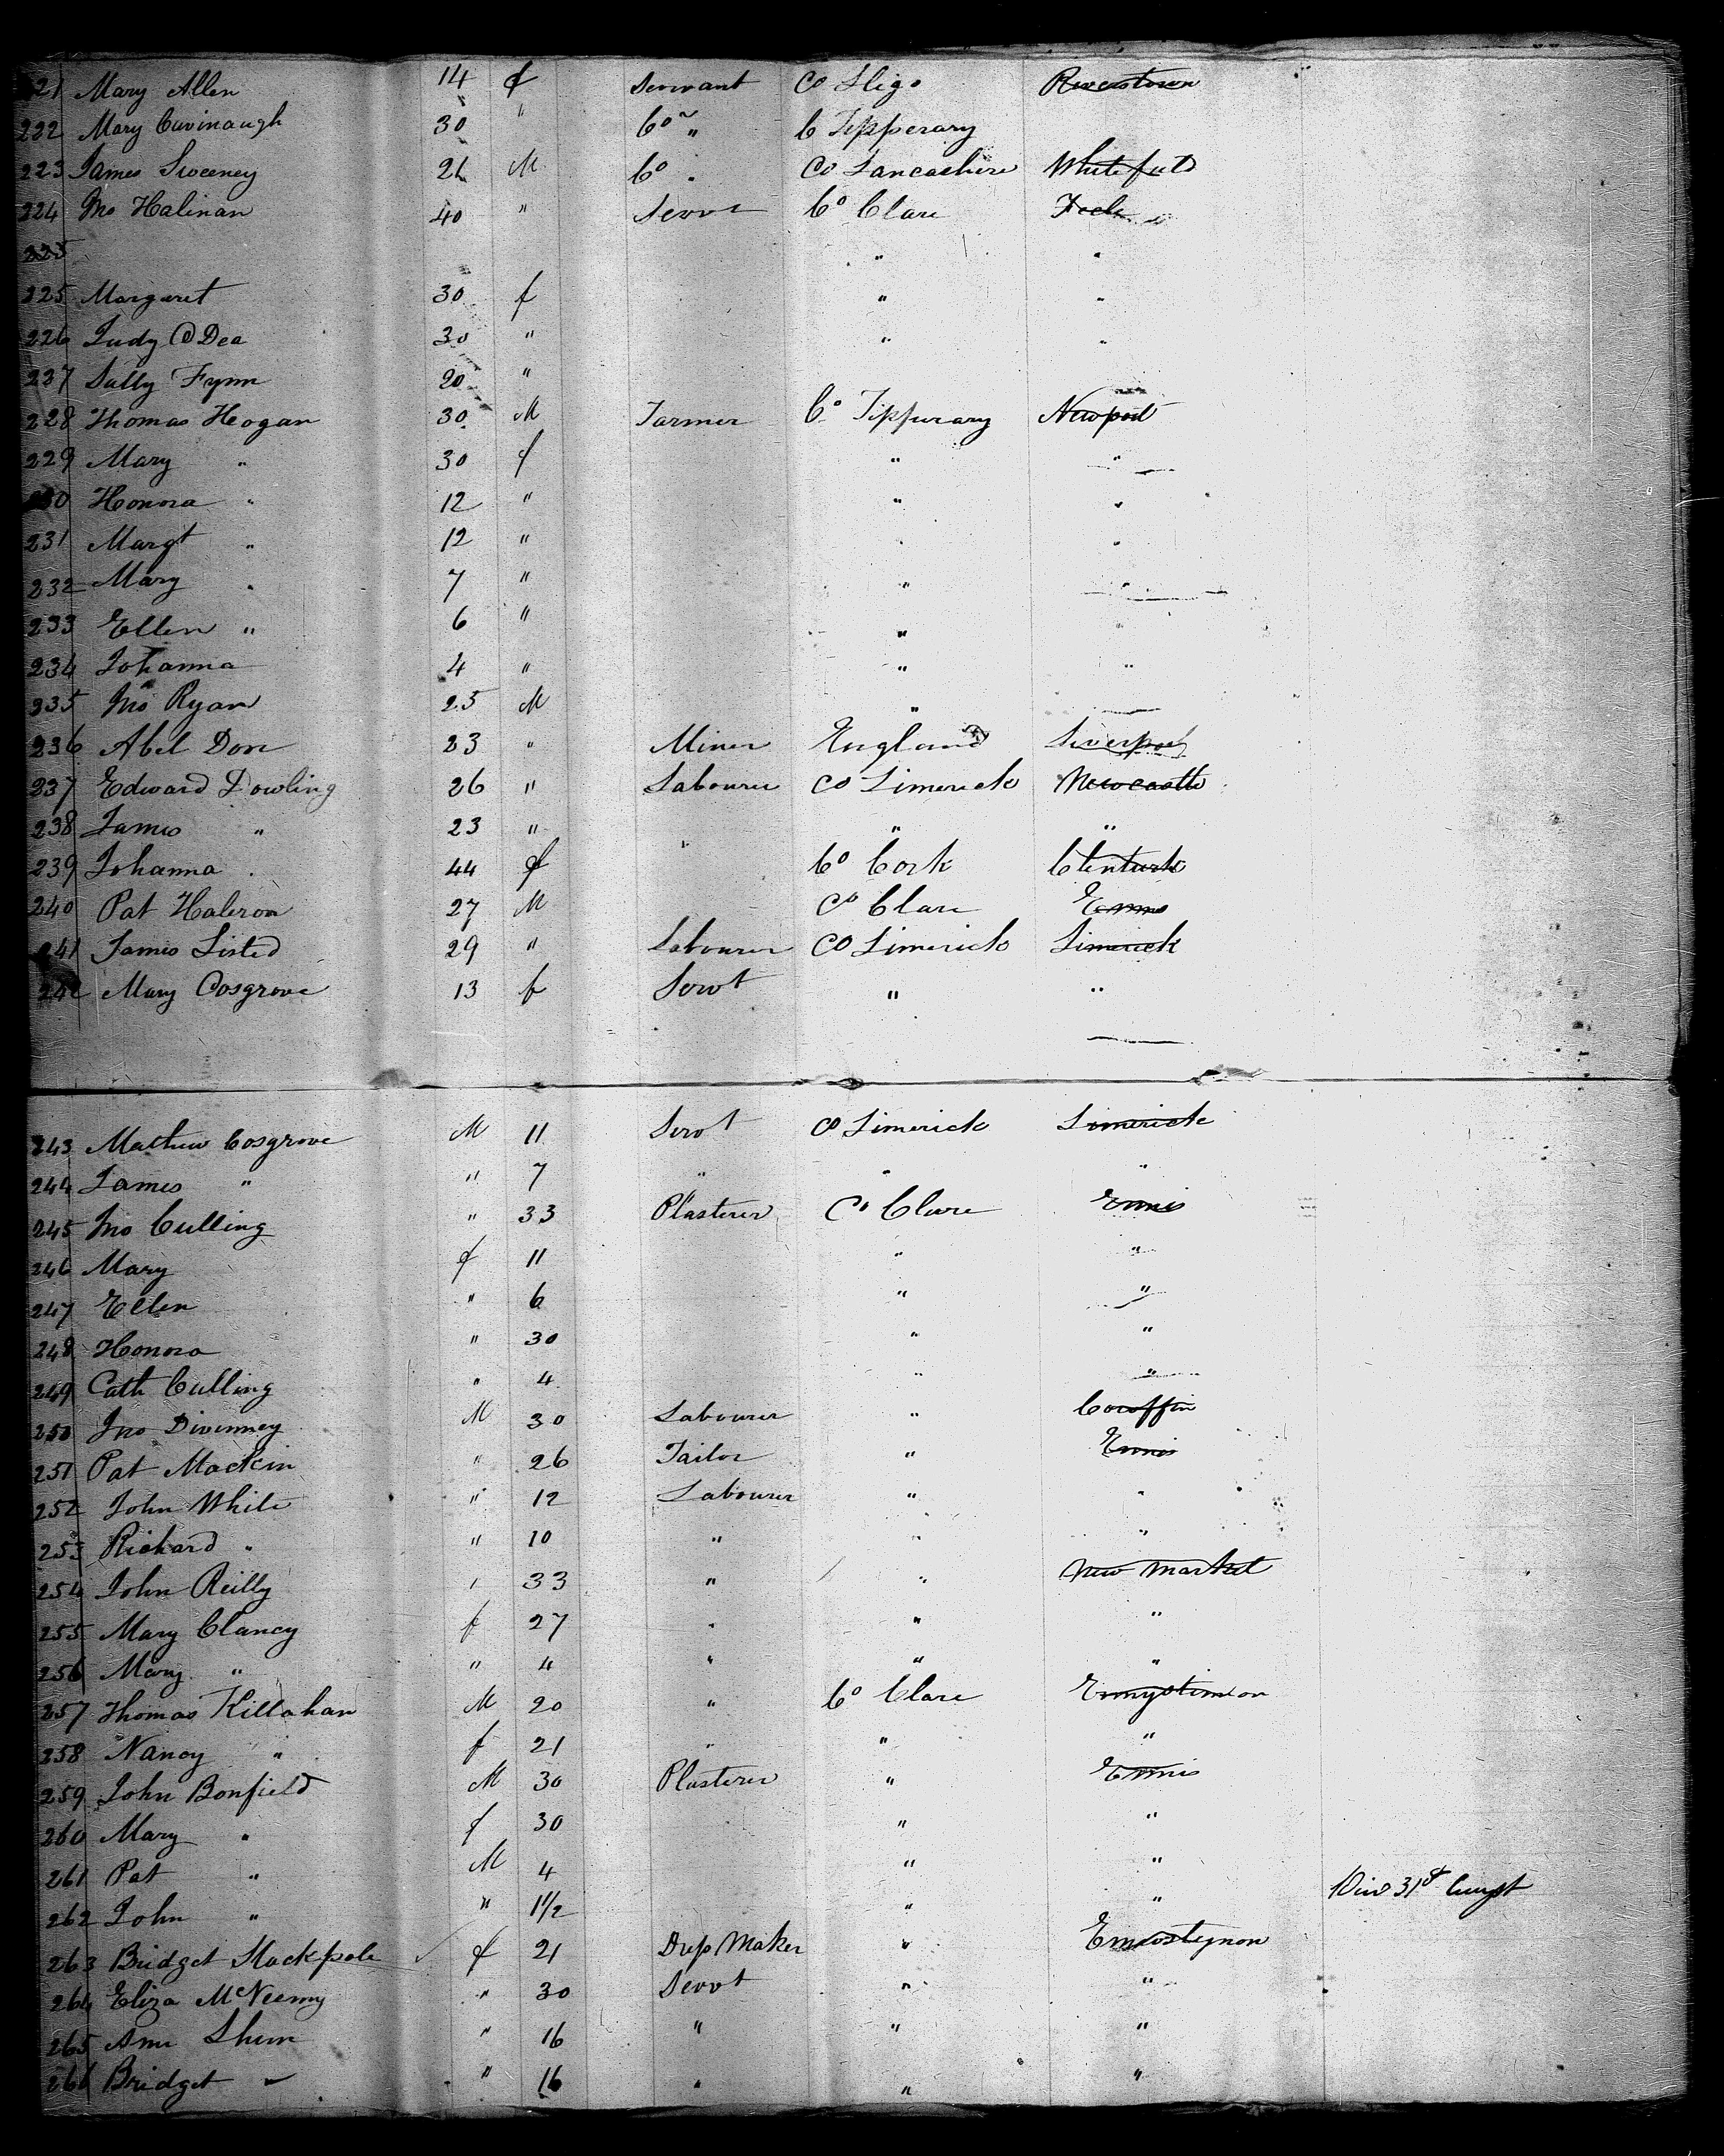 221 Mary Allen 14 f Servant Co Sligo Riverstown
222 Mary Cuvinaugh 30 " Co " C Tipperary
223 James Sweeney 26 M Co " Co Lancashire Whitefield
224 Jno Halinan 40 " Servt Co Clare
225 " "
225 Margaret 30 f " "
226 Judy O Dea 30 " " "
227 Sally Fynn 20 "
228 Thomas Hogan 30 M Farmer Co Tipperary Newport
229 Mary " 30 f " "
230 Honora " 12 " " "
231 Margt " 12 " " "
232 Mary " 7 " " "
233 Ellen " 6 " " "
234 Johanna 4 " " "
235 Jno Ryan 25 M "
236 Abel Don 23 " Miner England Liverpool
237 Edward Dowling 26 " Labourer Co Limerick Newcastle
238 James " 23 " " "
239 Johanna " 44 f Co Cork Cinturk
240 Pat Haleron 27 M Co Clare Ennis
241 James Listed 29 " Labourer Co Limerick Limerick
242 Mary Cosgrove 13 f Servt " "
243 Mathew Cosgrove M 11 Servt Co Limerick Limerick
244 James " " 7 " " "
245 Jno Culling " 33 Plasterer Co Clare Ennis
246 Mary f 11 " "
247 Ellen " 6 " "
248 Honora " 30 " "
249 Cath Culling " 4 " "
250 Jno Divinney M 30 Labourer " Coroffin
251 Pat Mackin " 26 Tailor " Ennis
252 John White " 12 Labourer " "
253 Richard " " 10 " " "
254 John Reilly " 33 " " New Market
255 Mary Clancy f 27 " " "
256 Mary " " 4 " " "
257 Thomas Killahan M 20 " Co Clare Ennystimon
258 Nancy " f 21 " " "
259 John Bonfield M 30 Plasterer " Ennis
260 Mary " f 30 " "
261 Pat " M 4 " "
262 John " " 1 1/2 " " Died 31st Augst
263 Bridget Stackpole f 21 Dress Maker " Ennestymon
264 Eliza McNeemy " 30 Servt " "
265 Ann Shum " 16 " " "
266 Bridget " " 16 " " "